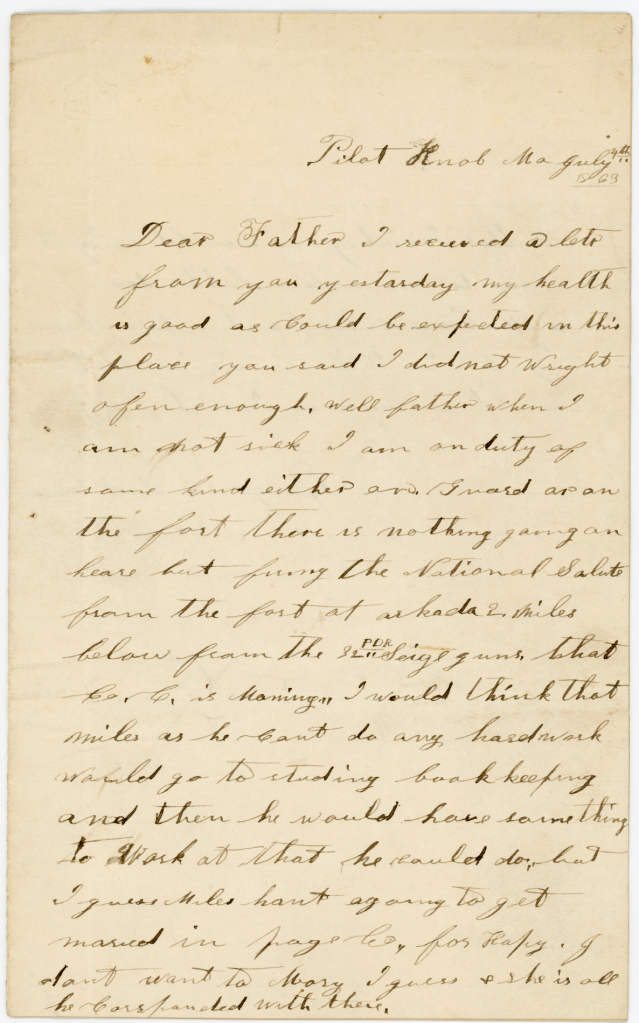 Pilot Knob Mo July 4th
1863
Dear Father I receved a letr
from you yestarday my health
is good as Could be expected in this
place you said I did not Wright
ofen enough. Well father when I
am not sick I am on duty of
some kind either on. Guard or on
the fort there is nothing going on
heare but firing the National Salute
from the fort at arkada 2. Miles
below from the 32 PDR Seige guns. that
Co. C. is Maning,, I would think that
miles as he Cant do any hard work
would go to studing bookkeeping
and then he would have something
to Work at that he could do,, but
I guess Miles hant agoing to get
maried in page Co,, for
dont want to Mary I guess & she is all
he Corsponded with there.